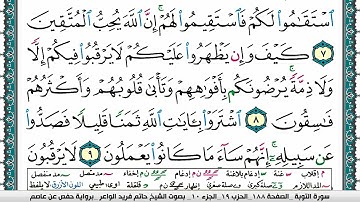 ٱسۡتَقَٰمُواْ لَكُمۡ فَٱسۡتَقِيمُواْ لَهُمۡۚ إِنَّ ٱللَّهَ يُحِبُّ ٱلۡمُتَّقِينَ
٧ كَيۡفَ وَإِن يَظۡهَرُواْ عَلَيۡكُمۡ لَا يَرۡقُبُواْ فِيكُمۡ إِلّٗا
وَلَا ذِمَّةٗۚ يُرۡضُونَكُم بِأَفۡوَٰهِهِمۡ وَتَأۡبَىٰ قُلُوبُهُمۡ وَأَكۡثَرُهُمۡ
فَٰسِقُونَ ٨ ٱشۡتَرَوۡاْ بِـَٔايَٰتِ ٱللَّهِ ثَمَنٗا قَلِيلٗا فَصَدُّواْ
عَن سَبِيلِهِۦٓۚ إِنَّهُمۡ سَآءَ مَا كَانُواْ يَعۡمَلُونَ ٩ لَا يَرۡقُبُونَ
سورة التوبة . الصفحة ١٨٨ الحزب ١٩ . الجزء ١٠ بصوت الشيخ حاتم فريد الواعر . برواية حفص عن عاصم